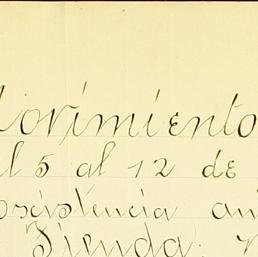 Movimiento
al 5 al 12 de
existencia an
Tienda: